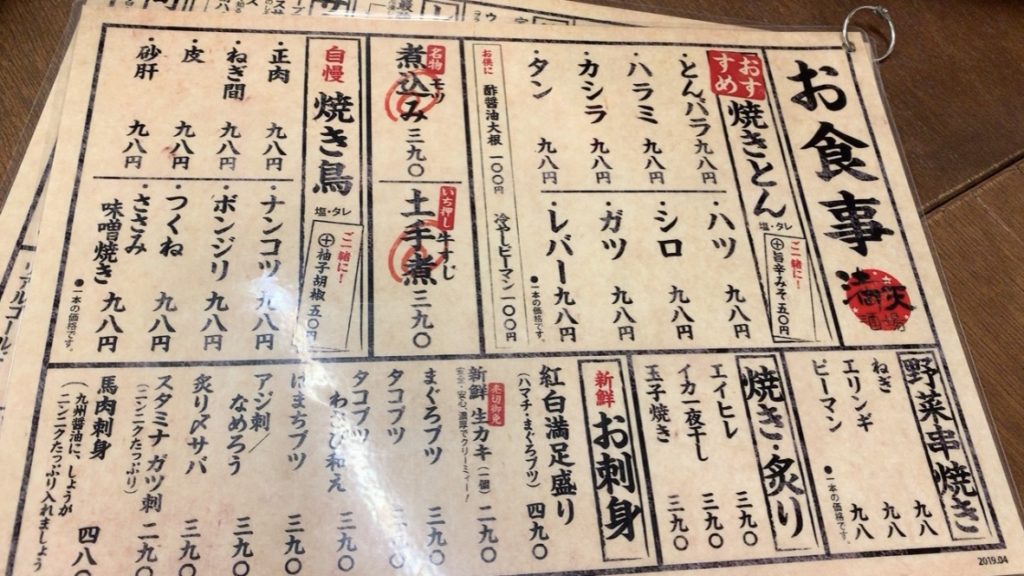 お食事
満天
酒場
おすすめ
焼きとん
塩・タレ
ご一緒に！
㊉旨辛みそ 五〇円
・とんバラ 九八円
・ハラミ 九八円
・カシラ 九八円
・タン 九八円
・ハツ 九八円
・シロ 九八円
・ガツ 九八円
・レバー 九八円
●一本の価格です。
お供に
酢醤油大根 一〇〇円
冷やしピーマン 一〇〇円
名物
モツ
煮込み 三九〇
いち押し
牛すじ
土手煮 三九〇
自慢
焼き鳥
塩・タレ
ご一緒に！
㊉柚子胡椒 五〇円
・正肉 九八円
・ねぎ間 九八円
・皮 九八円
・砂肝 九八円
・ナンコツ 九八円
・ボンジリ 九八円
・つくね 九八円
・ささみ
味噌焼き 九八円
●一本の価格です。
野菜串焼き
ねぎ 九八
エリンギ 九八
ピーマン 九八
●一本の価格です。
焼き・炙り
エイヒレ 三九〇
イカ一夜干し 三九〇
玉子焼き 三九〇
新鮮
お刺身
紅白満足盛り 四九〇
（ハマチ・まぐろブツ）
売切御免
新鮮 生カキ（一個） 二九〇
安全・安心、濃厚でクリーミィー！
まぐろブツ 三九〇
タコブツ 三九〇
タコブツ
わさび和え 三九〇
はまちブツ 三九〇
アジ刺/
なめろう 三九〇
炙り〆サバ 三九〇
スタミナガツ刺 二九〇
（ニンニクたっぷり）
馬肉刺身 四八〇
（九州醤油に、しょうが
ニンニクたっぷり入れましょう
2019.04